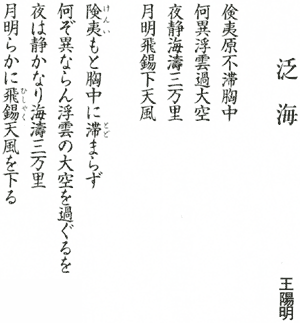 泛海
王陽明
倹夷原不滞胸中
何異浮雲過大空
夜静海濤三万里
月明飛錫下天風
険夷もと胸中に滞まらず
何ぞ異ならん浮雲の大空を過ぐるを
夜は静かなり海濤三万里
月明らかに飛錫天風を下る